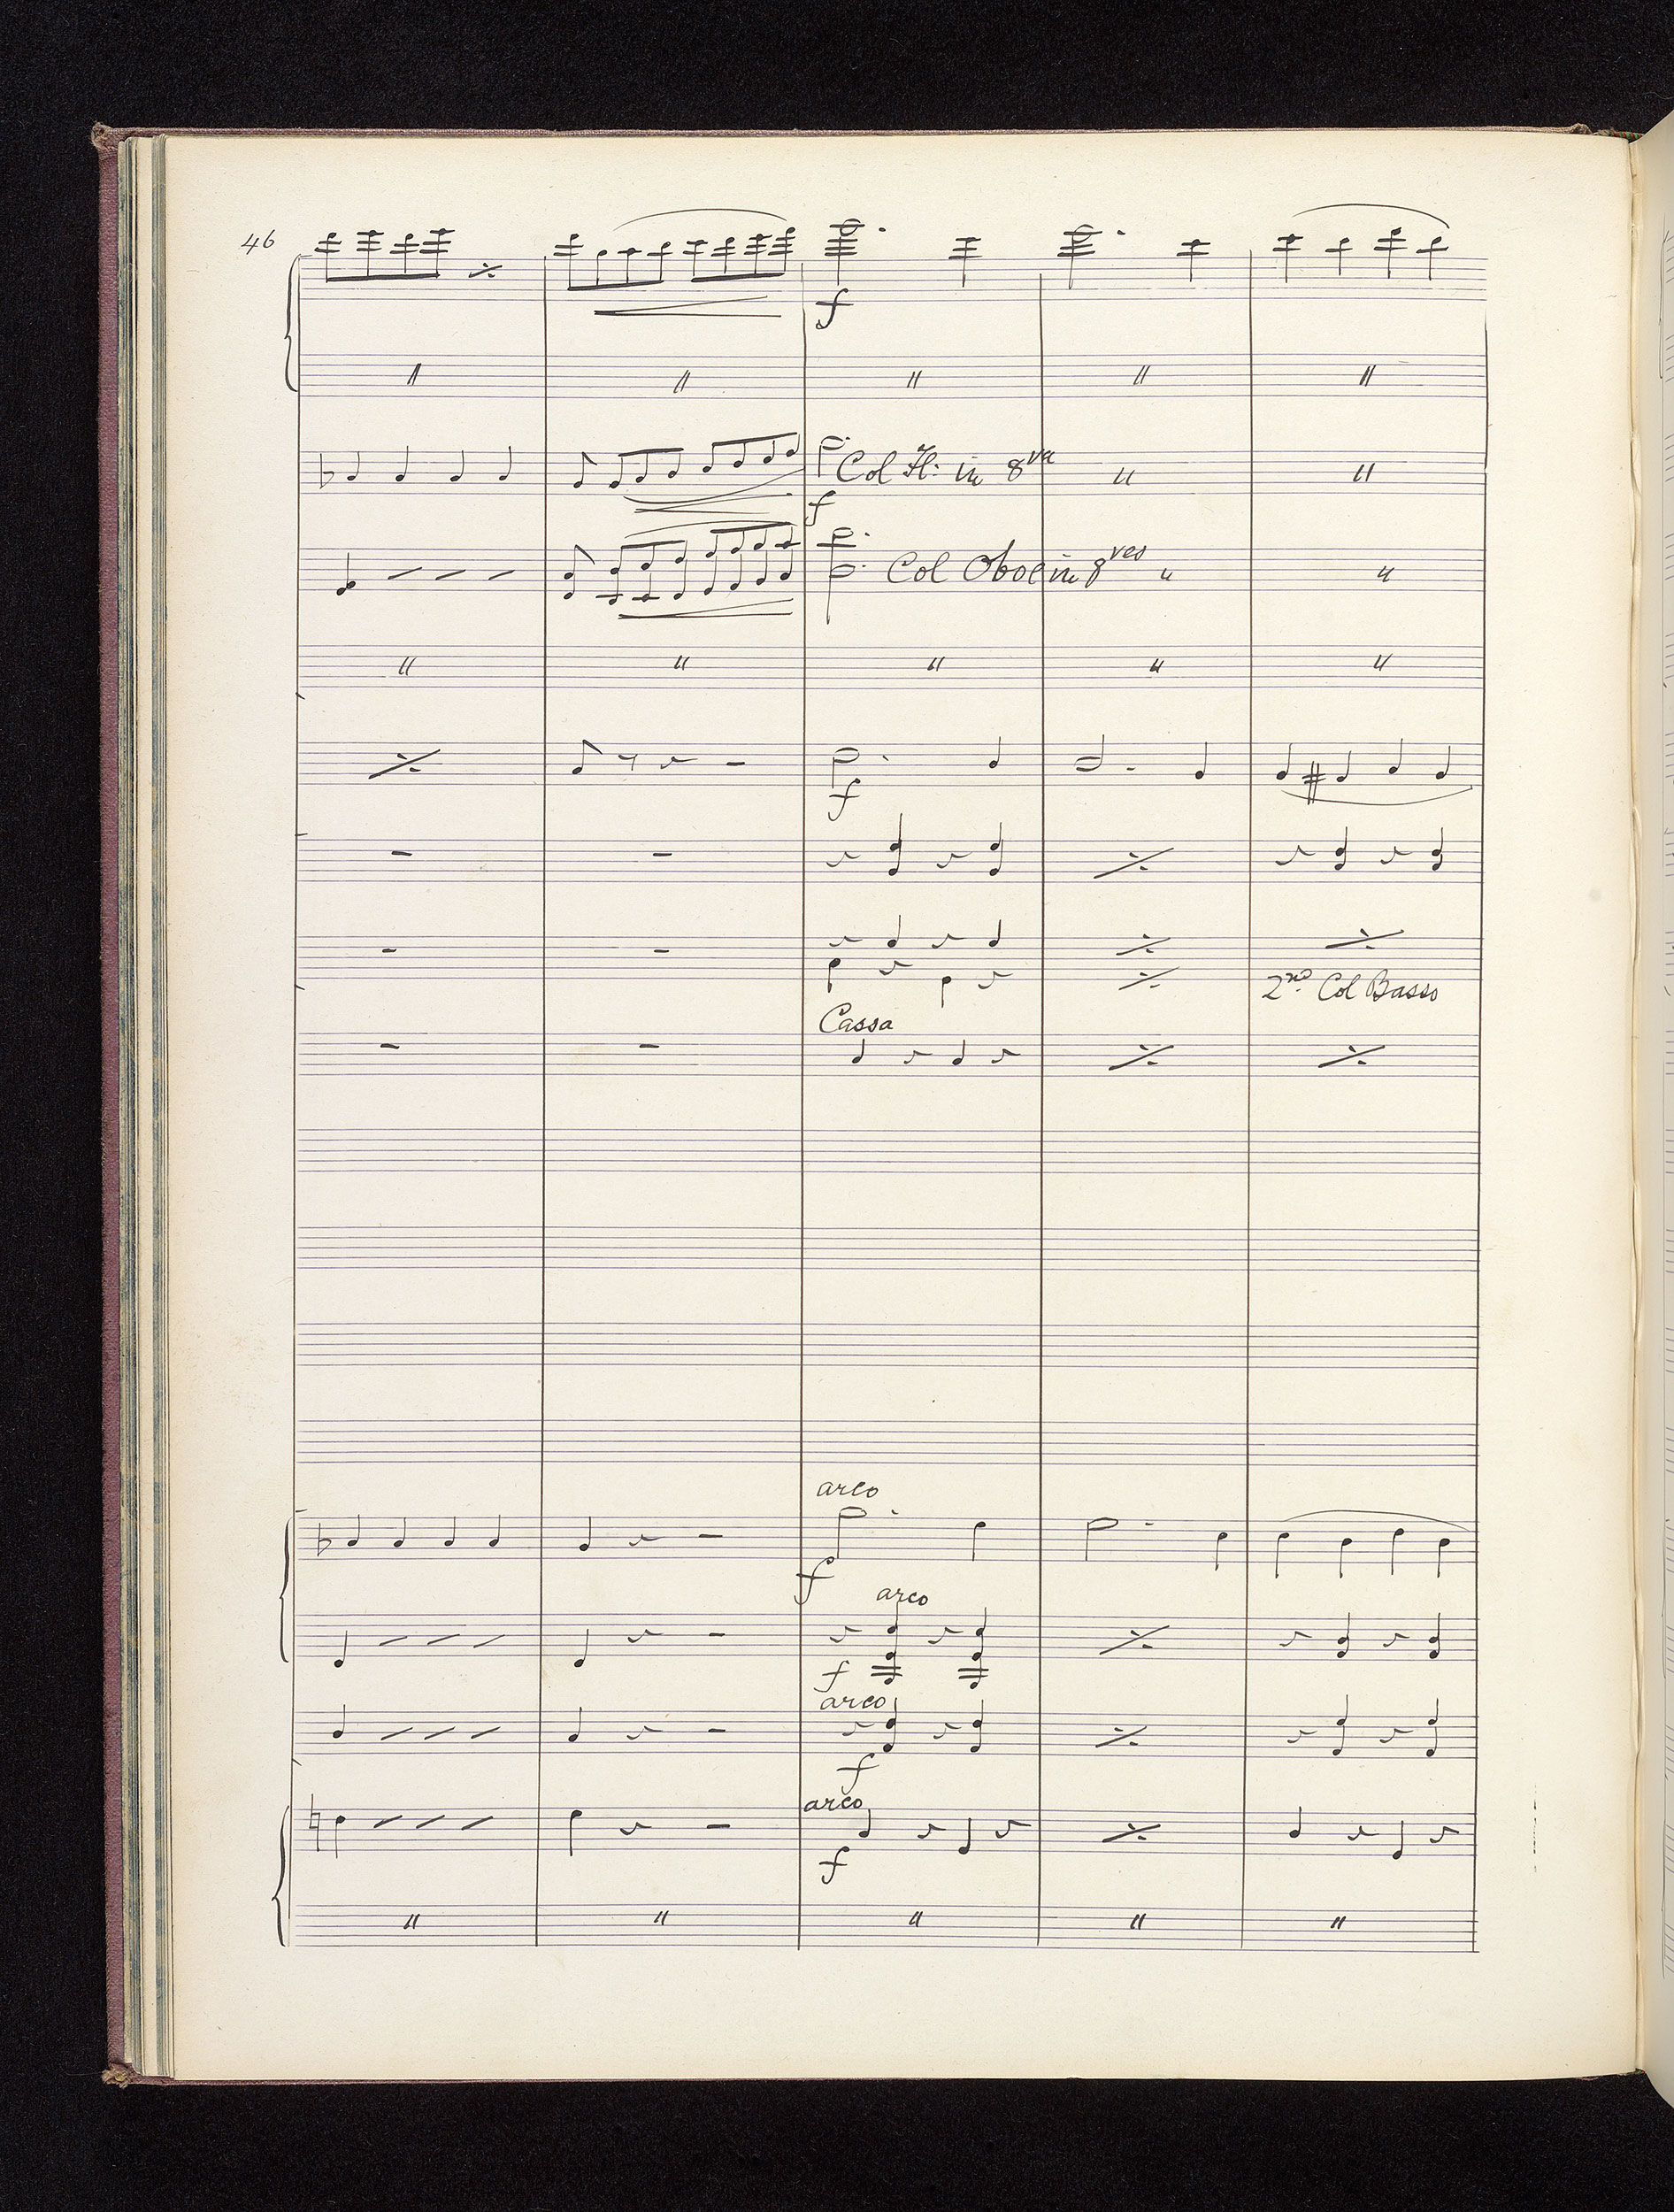 46
f
Col Fl: in 8va
f
Col Oboe in 8ves
f
2nd Col Basso
Cassa
arco
f
arco
f
arco
f
arco
f